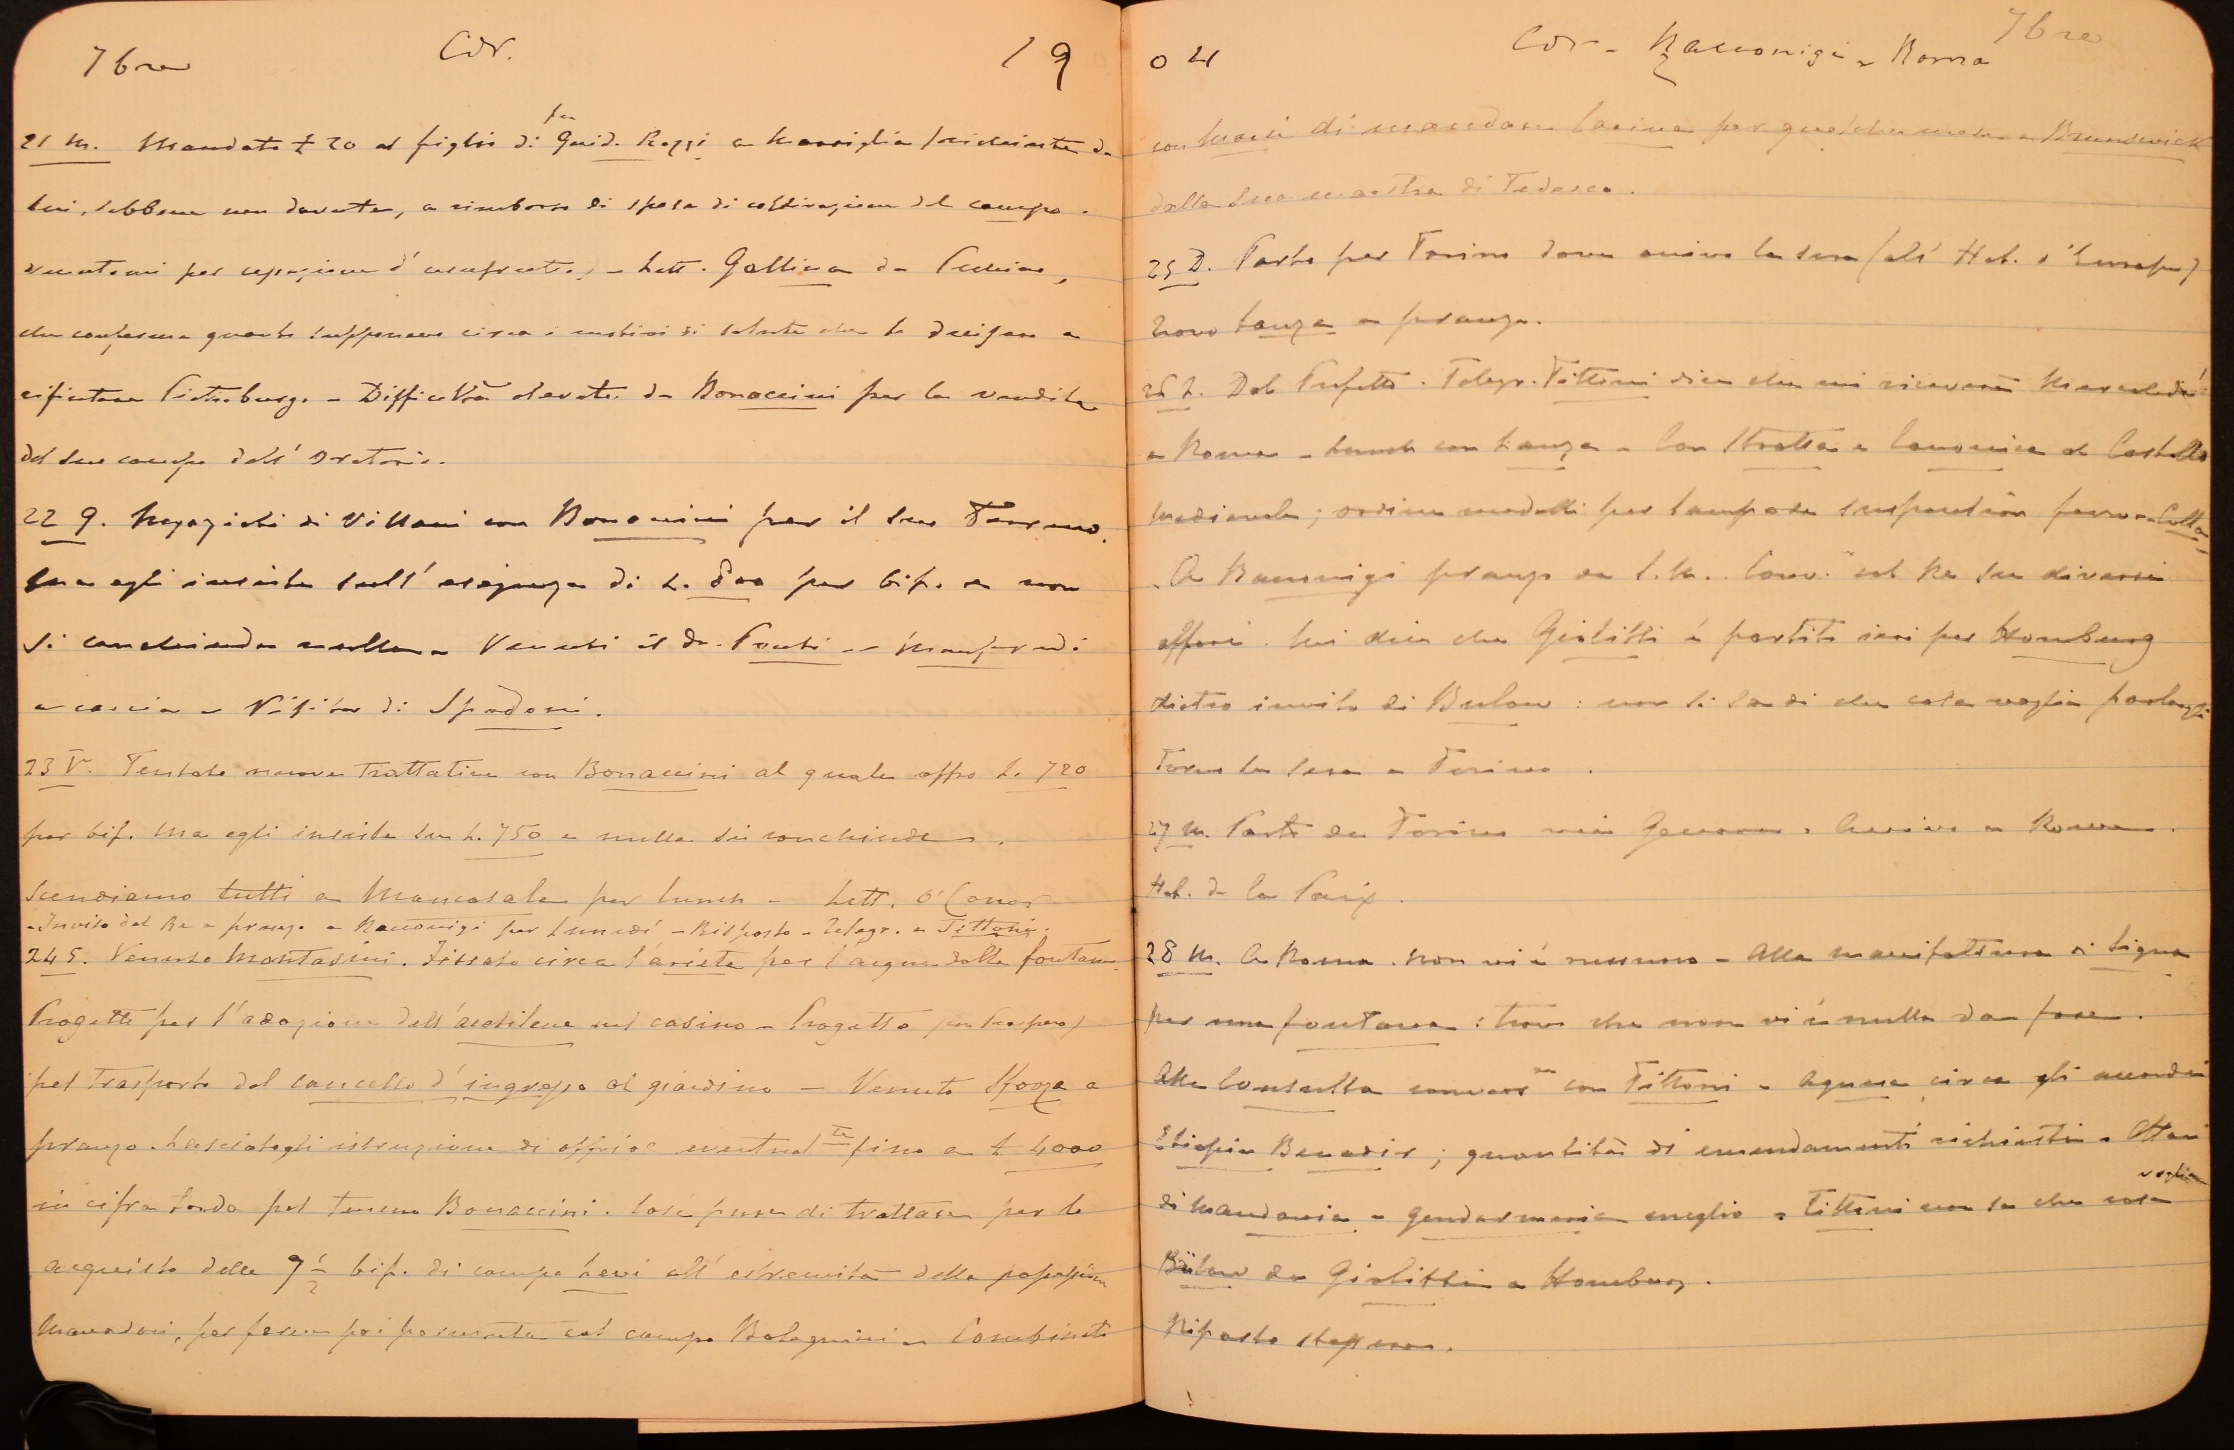 7bre Cor. 19
21 M. Mandato £ 20 al figlio di fu Guid. Rozzi a Marsiglia
lui, sebbene non dovute, a rimborso di spesa di coltivazione del campo
per d'usufrutto, - Lett. Gallina da
che conferma quanto supponevo circa i motivi di salute che lo a
rifiutare Pietroburgo - Difficoltà elevate da Bonaccini per la vendita
del suo campo dell'oratorio.
22 G. Negoziati di Villani con Bonaccini per il suo terreno,
ma egli insiste sull'esigenza di L. 800 per bif. e non
si conchiude nulla - Venuti il dr. Ponti - Manfredi
a caccia - Visita di Spadoni.
23 V. Tentate nuove trattative con Bonaccini al quale offro L. 720
per bif. ma egli insiste su L. 750 e nulla si conchiude.
Scendiamo tutti a Mancasale per lunch - Lett. O'Conor
- Invito dal Re a pranzo a Racconigi per Lunedì - Risposto - Telegr. a Tittoni.
24 S. Venuto Montasini. Fissato circa l'ariete per l'acqua della fontana
Progetti per l'adozione dell'acetilene nel casino - Progetto
pel trasporto del cancello d'ingresso al giardino - Venuto Sforza a
pranzo. Lasciatogli istruzione di offrire eventualte fino a £ 4000
in cifra tonda pel terreno Bonaccini. Così pure di trattare per lo
acquisto delle 9 1/2 bif. di campo Levi all'estremità della possessione
per farne poi permuta col campo Bolognini - Combinato
04 Cor - Racconigi - Roma 7bre
con Marie di mandare per qualche mese a Brunswick
dalla sua maestra di Tedesco.
25 D. Parto per Torino dove arrivo la sera (all'Hot. d'Europe)
trovo Lanza a pranzo.
26 L. Dal Prefetto. Telegr. Tittoni dice che mi riceverà Mercoledì
a Roma - Lunch con Lanza - Con Stratta e Canonica al Castello
Medievale; ordine modelli per lampada
- A Racconigi pranzo da S.M. Conv.ne col Re su diversi
affari. Mi dice che Giolitti è partito ieri per Homburg
dietro invito di Bulow: non si sa di che cosa voglia parlargli
Torno la sera a Torino.
27 M. Parto da Torino via Genova. Arrivo a Roma.
Hot. de la Paix.
28 M. A Roma. Non vi è nessuno - Alla manifattura di Signa
per una fontana: trovo che non vi è nulla da fare.
Alla Consulta conversne con Tittoni - Agnesa circa gli accordi
Etiopia Benadir; quantità di emendamenti richiesti -
di Macedonia - gendarmeria meglio - Tittoni non sa che cosa voglia
Bülow da Giolitti a Homburg.
Riparto stassera.